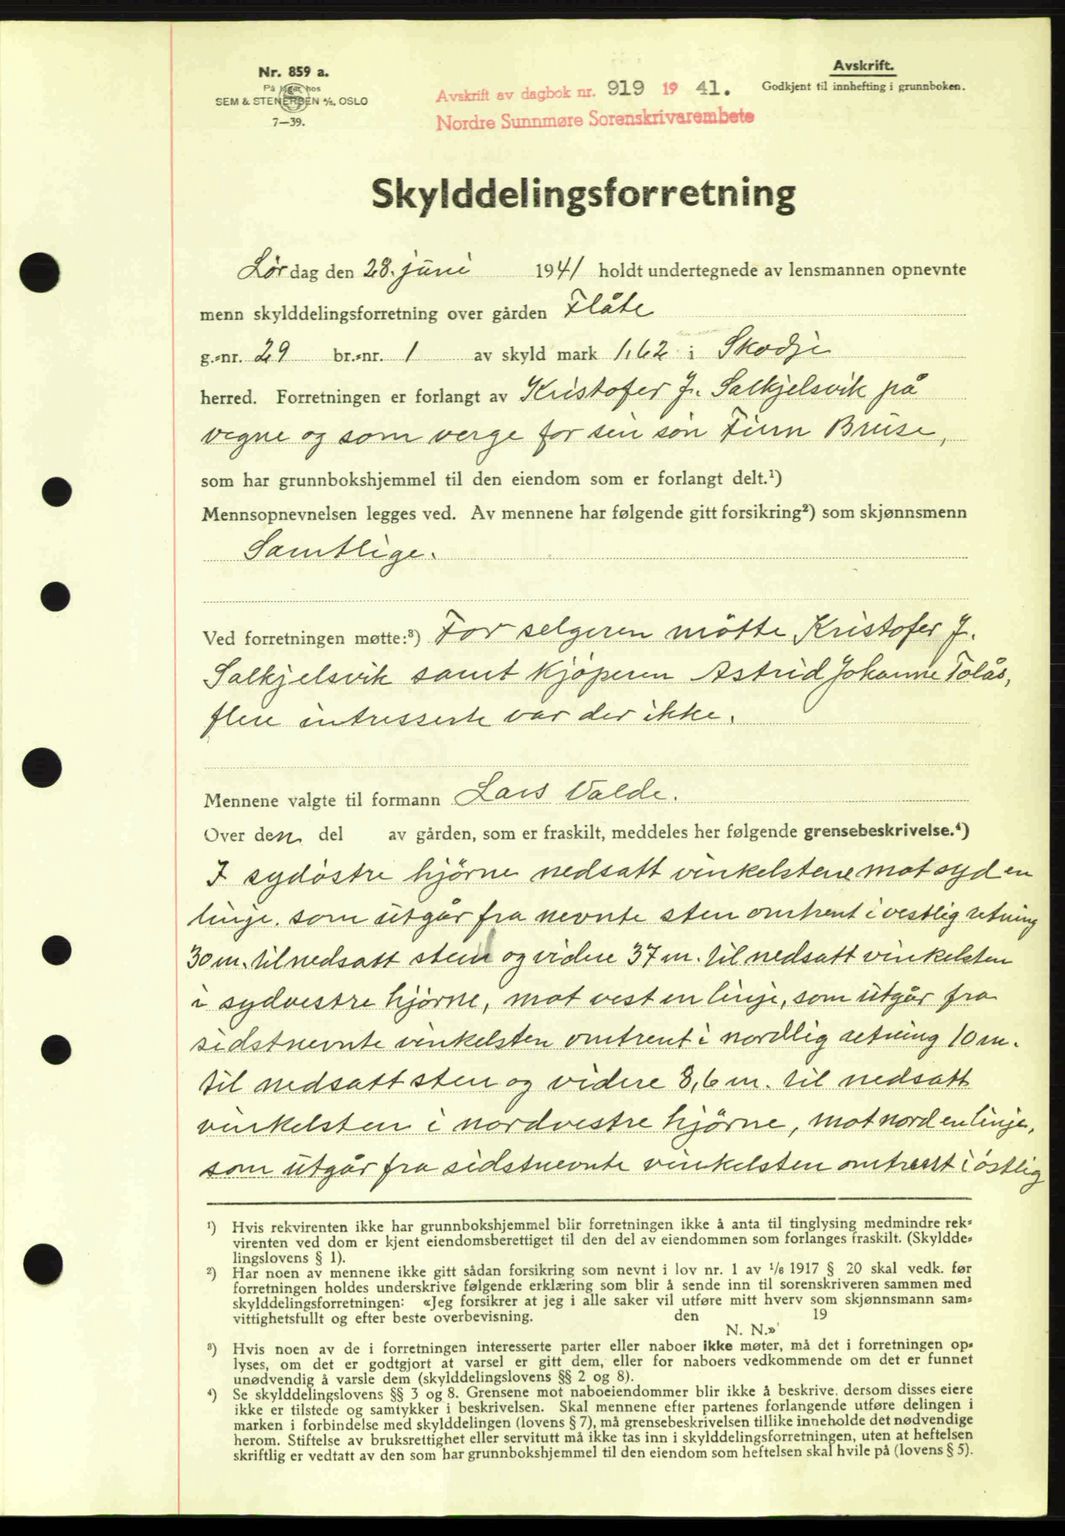 Nr. 859 a.
På lager hos
SEM & STENERSEN A/S, OSLO
7—39.
Avskrift av dagbok nr. 919 19 41.
Nordre Sunnmøre Sorenskrivarembete
Avskrift.
Godkjent til innhefting i grunnboken.
Skylddelingsforretning
Lørdag den 28. juni 1941 holdt undertegnede av lensmannen opnevnte
menn skylddelingsforretning over gården Flåte
g.-nr. 29 br.-nr. 1 av skyld mark 1,62 i Skodje
herred. Forretningen er forlangt av Kristofer J. Salkjelsvik på
vegne og som verge for sin søn Finn Bruse,
som har grunnbokshjemmel til den eiendom som er forlangt delt.¹)
Mennsopnevnelsen legges ved. Av mennene har følgende gitt forsikring²) som skjønnsmenn
Samtlige.
Ved forretningen møtte:³) For selgeren møtte Kristofer J.
Salkjelsvik samt kjøperen Astrid Johanne Tolås,
flere intresserte var der ikke.
Mennene valgte til formann Lars Valde.
Over den del av gården, som er fraskilt, meddeles her følgende grensebeskrivelse.⁴)
I sydøstre hjørne nedsatt vinkelstene mot syd en
linje. som utgår fra nevnte sten omtrent i vestlig retning
30 m. til nedsatt sten og videre 37 m. til nedsatt vinkelsten
i sydvestre hjørne, mot vest en linje, som utgår fra
sidstnevnte vinkelsten omtrent i nordlig retning 10 m.
til nedsatt sten og videre 8,6 m. til nedsatt
vinkelsten i nordvestre hjørne, mot nord en linje,
som utgår fra sidstnevnte vinkelsten omtrent i østlig
¹) Hvis rekvirenten ikke har grunnbokshjemmel blir forretningen ikke å anta til tinglysing medmindre rek-
virenten ved dom er kjent eiendomsberettiget til den del av eiendommen som forlanges fraskilt. (Skyldde-
lingslovens § 1).
²) Har noen av mennene ikke gitt sådan forsikring som nevnt i lov nr. 1 av 1/6 1917 § 20 skal vedk. før
forretningen holdes underskrive følgende erklæring som blir å sende inn til sorenskriveren sammen med
skylddelingsforretningen: «Jeg forsikrer at jeg i alle saker vil utføre mitt hverv som skjønnsmann sam-
vittighetsfullt og efter beste overbevisning. den 19
N. N.»
³) Hvis noen av de i forretningen interesserte parter eller naboer ikke møter, må det i forretningen op-
lyses, om det er godtgjort at varsel er gitt dem, eller for naboers vedkommende om det er funnet
unødvendig å varsle dem (skylddelingslovens §§ 2 og 8).
⁴) Se skylddelingslovens §§ 3 og 8. Grensene mot naboeiendommer blir ikke å beskrive, dersom disses eiere
ikke er tilstede og samtykker i beskrivelsen. Skal mennene efter partenes forlangende utføre delingen i
marken i forbindelse med skylddelingen (lovens § 7), må grensebeskrivelsen tillike inneholde det nødvendige
herom. Stiftelse av bruksrettighet eller servitutt må ikke tas inn i skylddelingsforretningen, uten at heftelsen
skriftlig er vedtatt av den som har grunnbokshjemmel til den eiendom som heftelsen skal hvile på (lovens § 5).